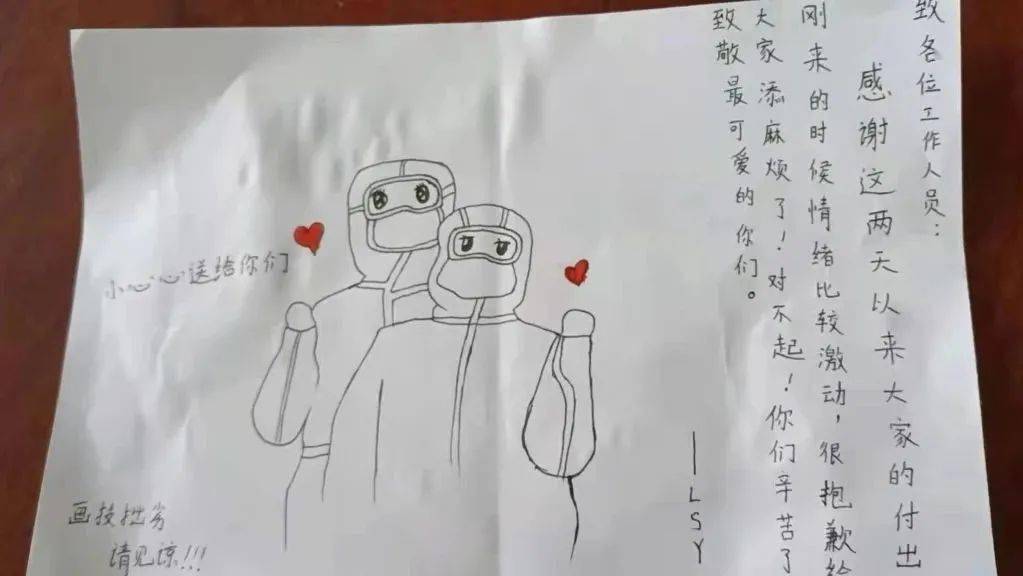 致各位工作人员：
感谢这两天以来大家的付出
刚来的时候情绪比较激动，很抱歉给
大家添麻烦了！对不起！你们辛苦了
致敬最可爱的你们。
—LSY
小心心送给你们
画技拙劣
请见谅!!!